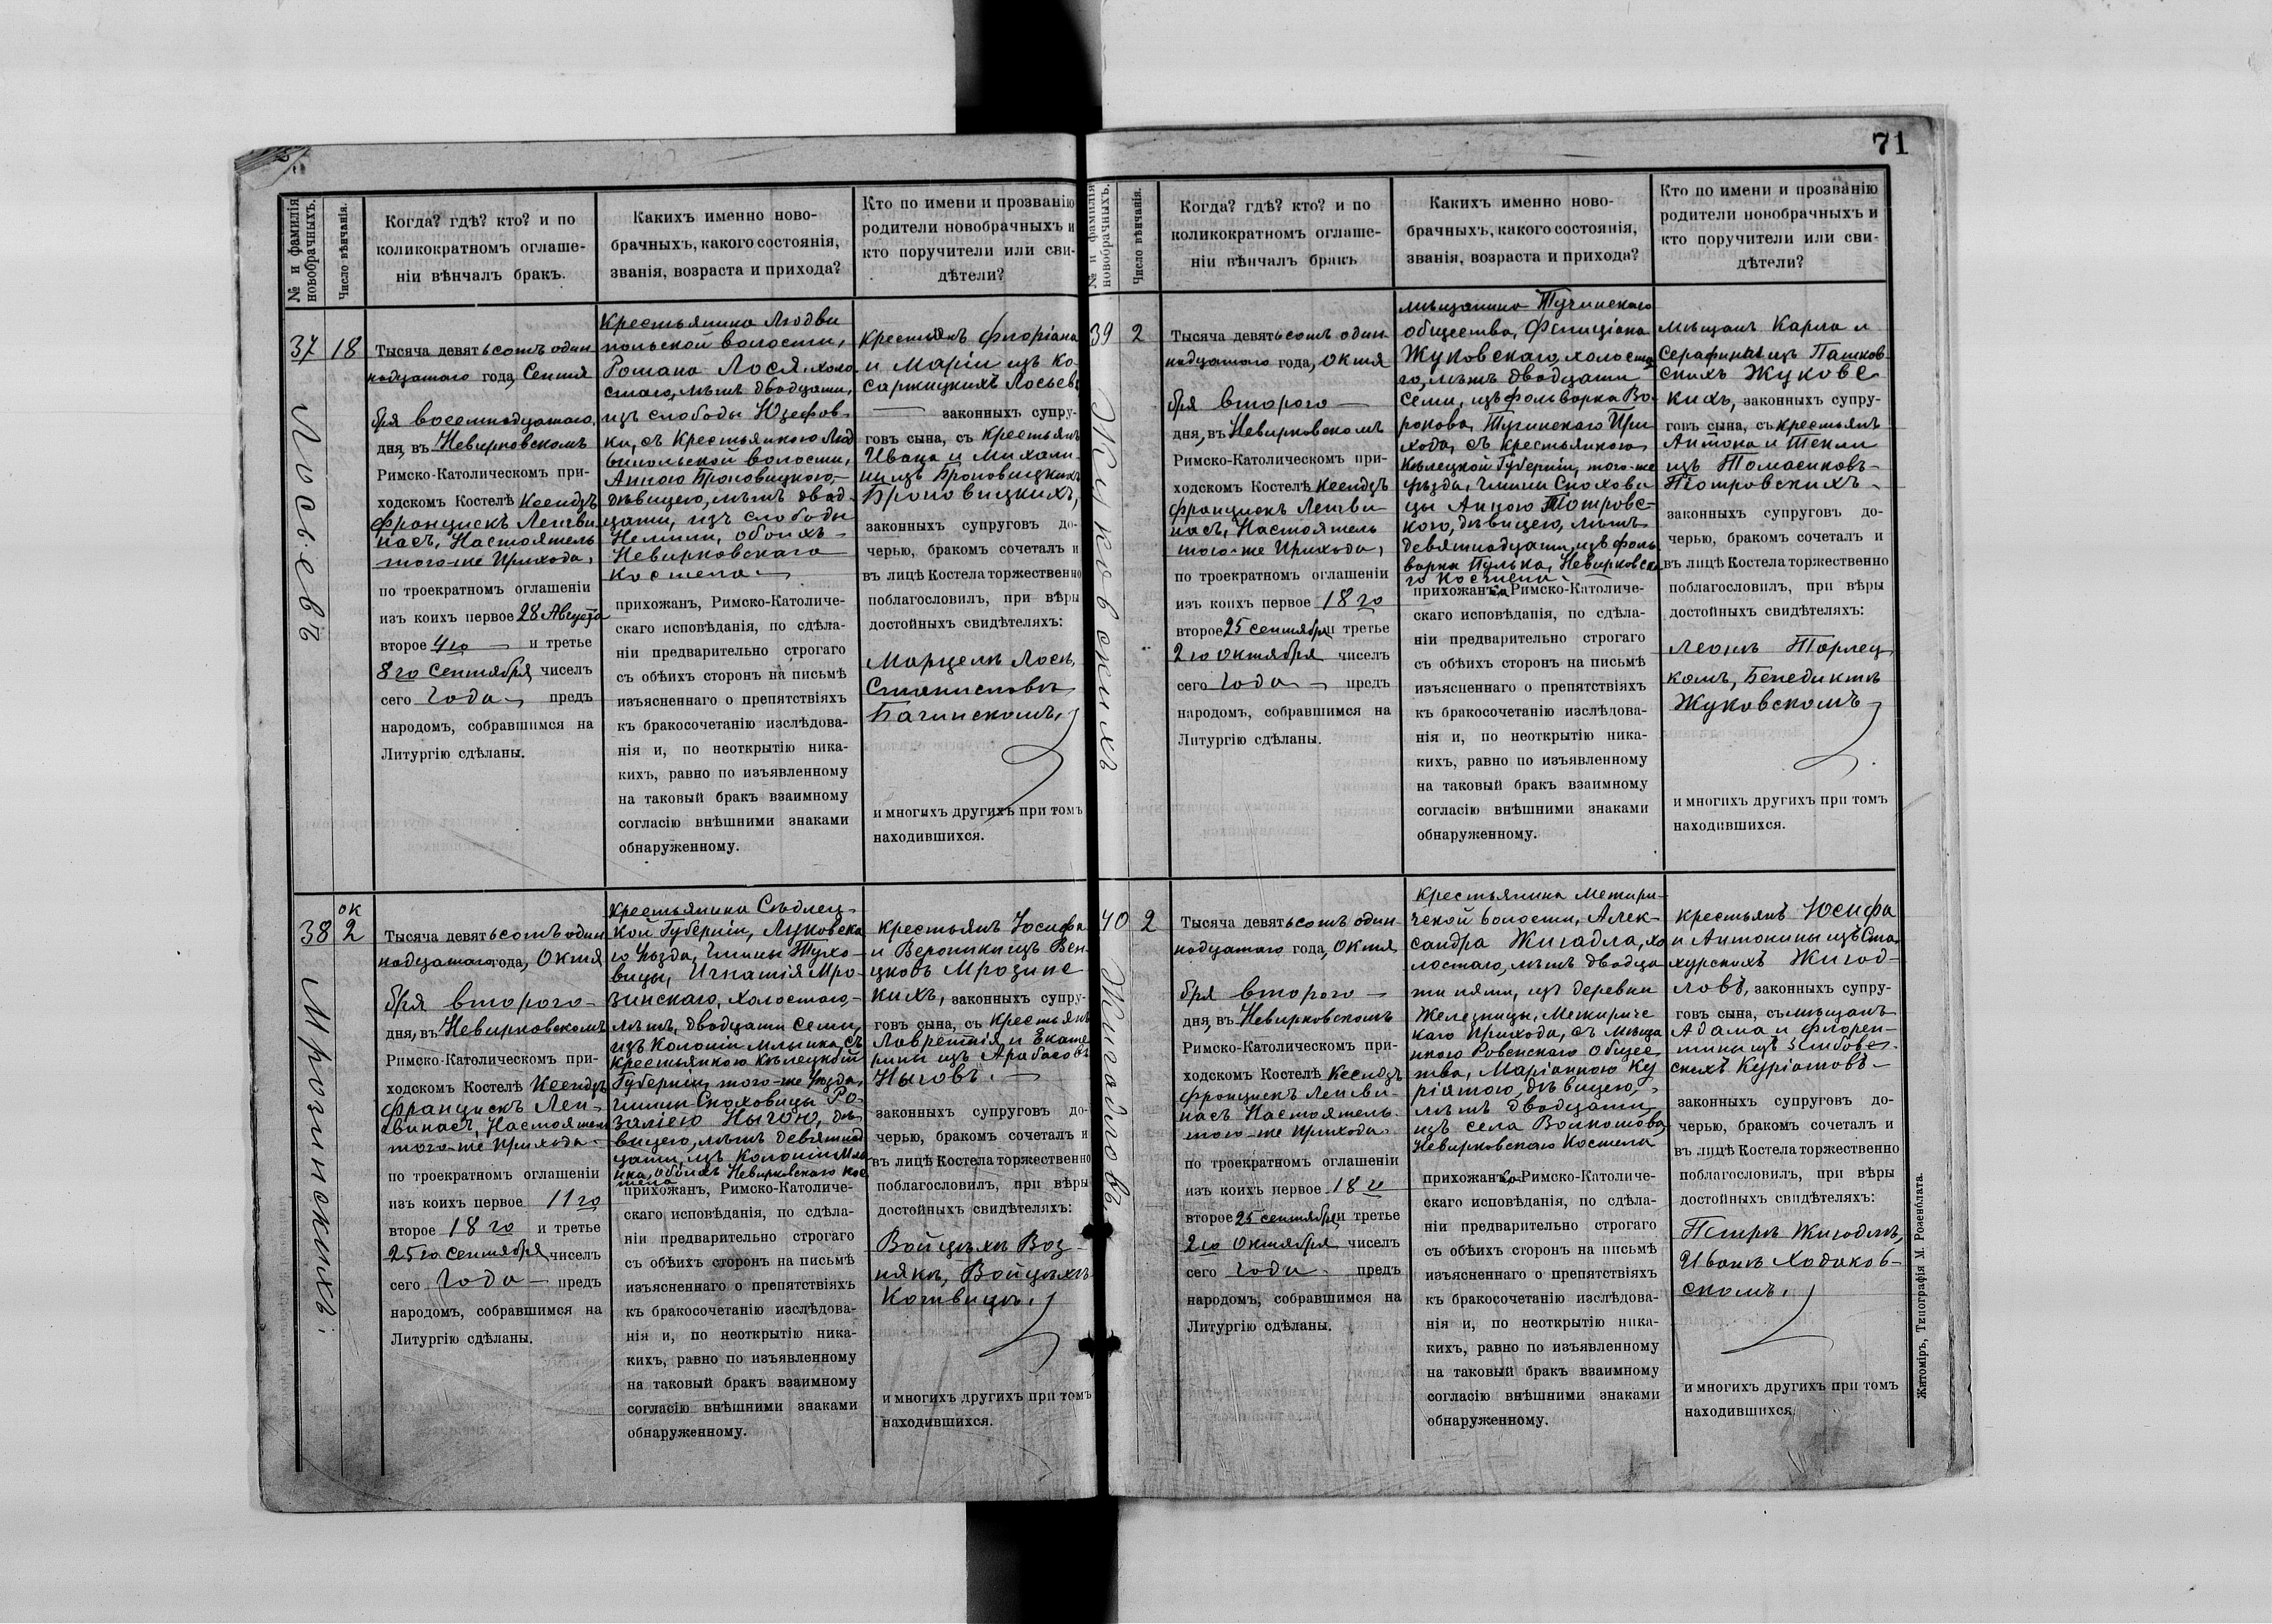 71
№ и фамилія новобрачныхъ.
Число вѣнчанія.
Когда? гдѣ? кто? и по
коликократномъ оглаше-
ніи вѣнчалъ бракъ.
Какихъ именно ново-
брачныхъ, какого состоянія,
званія, возраста и прихода?
Кто по имени и прозванію
родители новобрачныхъ и
кто поручители или сви-
дѣтели?
37
18
Лосьевъ
Тысяча девятьсотъ один
надцатаго года, Сентя
бря восемнадцатаго
дня, въ Невирковскомъ
Римско-Католическомъ при-
ходскомъ Костелѣ Ксендзъ
Францискъ Ленгви
насъ, Настоятель
того-же Прихода,
по троекратномъ оглашеніи
изъ коихъ первое 28 Августа
второе 4го и третье
8го Сентября чиселъ
сего года предъ
народомъ, собравшимся на
Литургію сдѣланы.
Крестьянина Людви
польской волости,
Романа Лося, холо
стаго, лѣтъ двадцати,
изъ слободы Юзефов-
ки, съ Крестьянкою Люд
випольской волости,
Анною Броновицкою,
дѣвицею, лѣтъ двад-
цати, изъ слободы
Немили, обоихъ
Невирковскаго
Костела
прихожанъ, Римско-Католиче-
скаго исповѣданія, по сдѣла-
ніи предварительно строгаго
съ обѣихъ сторонъ на письмѣ
изъясненнаго о препятствіяхъ
къ бракосочетанію изслѣдова-
нія и, по неоткрытію ника-
кихъ, равно по изъявленному
на таковый бракъ взаимному
согласію внѣшними знаками
обнаруженному.
Крестьянъ Флоріана
и Маріи изъ Ко-
саржицкихъ Лосьевъ
законныхъ супру-
говъ сына, съ Крестьянъ
Ивана и Михали-
ны изъ Броновицкихъ
Броновицкихъ,
законныхъ супруговъ до-
черью, бракомъ сочеталъ и
въ лицѣ Костела торжественно
поблагословилъ, при вѣры
достойныхъ свидѣтеляхъ:
Марцелѣ Лосѣ,
Станиславѣ
Багинскомъ,
и многихъ другихъ при томъ
находившихся.
38
ок
2
Мрозинскихъ.
Тысяча девятьсотъ один
надцатаго года, Октя
бря второго
дня, въ Невирковскомъ
Римско-Католическомъ при-
ходскомъ Костелѣ Ксендзъ
Францискъ Лен-
гвинасъ, Настоятель
того-же Прихода
по троекратномъ оглашеніи
изъ коихъ первое 11го
второе 18го и третье
25го Сентября чиселъ
сего года предъ
народомъ, собравшимся на
Литургію сдѣланы.
Крестьянина Сѣдлец-
кой Губерніи, Луковска
го Уѣзда, Гмины Тухо-
вицы, Игнатія Мро-
зинскаго, холостого,
лѣтъ, двадцати семи,
изъ Колоніи Млынка, съ
Крестьянкою Кѣлецкой
Губерніи, того-же Уѣзда,
Гмины Снаховицы Ро-
заліею Ныгою, дѣ-
вицею, лѣтъ девятнад
цати, изъ Колоніи Млы
нка, обоихъ Невирковскаго Кос
тела
прихожанъ, Римско-Католиче-
скаго исповѣданія, по сдѣла-
ніи предварительно строгаго
съ обѣихъ сторонъ на письмѣ
изъясненнаго о препятствіяхъ
къ бракосочетанію изслѣдова-
нія и, по неоткрытію ника-
кихъ, равно по изъявленному
на таковый бракъ взаимному
согласію внѣшними знаками
обнаруженному.
Крестьянъ Іосифа
и Вероники изъ Вен-
цковъ Мрозинс
кихъ, законныхъ супру-
говъ сына, съ Крестьянъ
Лаврентія и Екате
рины изъ Арабасовъ
Ныговъ.
законныхъ супруговъ до-
черью, бракомъ сочеталъ и
въ лицѣ Костела торжественно
поблагословилъ, при вѣры
достойныхъ свидѣтеляхъ:
Войцѣхѣ Воз-
някѣ, Войцѣхѣ
Котвицѣ,
и многихъ другихъ при томъ
находившихся.
№ и фамилія новобрачныхъ.
Число вѣнчанія.
Когда? гдѣ? кто? и по
коликократномъ оглаше-
ніи вѣнчалъ бракъ
Какихъ именно ново-
брачныхъ, какого состоянія,
званія, возраста и прихода?
Кто по имени и прозванію
родители новобрачныхъ и
кто поручители или сви-
дѣтели?
39
2
Жуковскихъ
Тысяча девятьсотъ один
надцатаго года, Октя
бря второго
дня, въ Невирковскомъ
Римско-Католическомъ при-
ходскомъ Костелѣ Ксендзъ
Францискъ Ленгви
насъ, Настоятель
того-же Прихода,
по троекратномъ оглашеніи
изъ коихъ первое 18го
второе 25 сентября и третье
2го Октября чиселъ
сего года предъ
народомъ, собравшимся на
Литургію сдѣланы.
Мѣщанина Тучинскаго
общества, Фелиціана
Жуковскаго, холоста
го, лѣтъ двадцати
семи, изъ фольварка Во-
ронова, Тучинскаго При
хода, съ Крестьянкою
Кѣлецкой Губерніи, того-же
Уѣзда, Гмины Снохови
цы Анною Піотровс-
кою, дѣвицею, лѣтъ
девятнадцати, изъ фоль
варка Пулька, Невирковска
го Костела
прихожанъ, Римско-Католиче-
скаго исповѣданія, по сдѣла-
ніи предварительно строгаго
съ обѣихъ сторонъ на письмѣ
изъясненнаго о препятствіяхъ
къ бракосочетанію изслѣдова-
нія и, по неоткрытію ника-
кихъ, равно по изъявленному
на таковый бракъ взаимному
согласію внѣшними знаками
обнаруженному.
Мѣщанъ Карла и
Серафины изъ Пашков
скихъ Жуковс
кихъ, законныхъ супру-
говъ сына, съ Крестьянъ
Антона и Текли
изъ Томасиковъ-
Піотровскихъ
законныхъ супруговъ до-
черью, бракомъ сочеталъ и
въ лицѣ Костела торжественно
поблагословилъ, при вѣры
достойныхъ свидѣтеляхъ:
Леонѣ Торлец
комъ, Бенедиктѣ
Жуковскомъ
и многихъ другихъ при томъ
находившихся.
40
2
Жигадловъ
Тысяча девятьсотъ один
надцатаго года, Октя
бря второго
дня, въ Невирковскомъ
Римско-Католическомъ при-
ходскомъ Костелѣ Ксендзъ
Францискъ Ленгви-
насъ Настоятель
того-же Прихода
по троекратномъ оглашеніи
изъ коихъ первое 18го
второе 25 сентября и третье
2го Октября чиселъ
сего года предъ
народомъ, собравшимся на
Литургію сдѣланы.
Крестьянина Межири-
чской волости, Алек-
сандра Жигадла, хо
лостаго, лѣтъ двадца
ти пяти, изъ деревни
Железницы, Межиричс
каго Прихода, съ Мѣща
нкою Ровенскаго Общес
тва, Маріанною Ку
ріатою, дѣвицею,
лѣтъ двадцати
изъ села Волкошова,
Невирковскаго Костела
прихожанъ, Римско-Католиче-
скаго исповѣданія, по сдѣла-
ніи предварительно строгаго
съ обѣихъ сторонъ на письмѣ
изъясненнаго о препятствіяхъ
къ бракосочетанію изслѣдова-
нія и, по неоткрытію ника-
кихъ, равно по изъявленному
на таковый бракъ взаимному
согласію внѣшними знаками
обнаруженному.
Крестьянъ Юсифа
и Антонины изъ Ста
хурскихъ Жигад-
ловъ, законныхъ супру-
говъ сына, съ мѣщанъ
Адама и Флорен-
тины изъ
скихъ Куріатовъ
законныхъ супруговъ до-
черью, бракомъ сочеталъ и
въ лицѣ Костела торжественно
поблагословилъ, при вѣры
достойныхъ свидѣтеляхъ:
Петрѣ Жигадлѣ,
Иванѣ Ходаков-
скомъ,
и многихъ другихъ при томъ
находившихся.
Житоміръ, Типографія М. Розенблата.